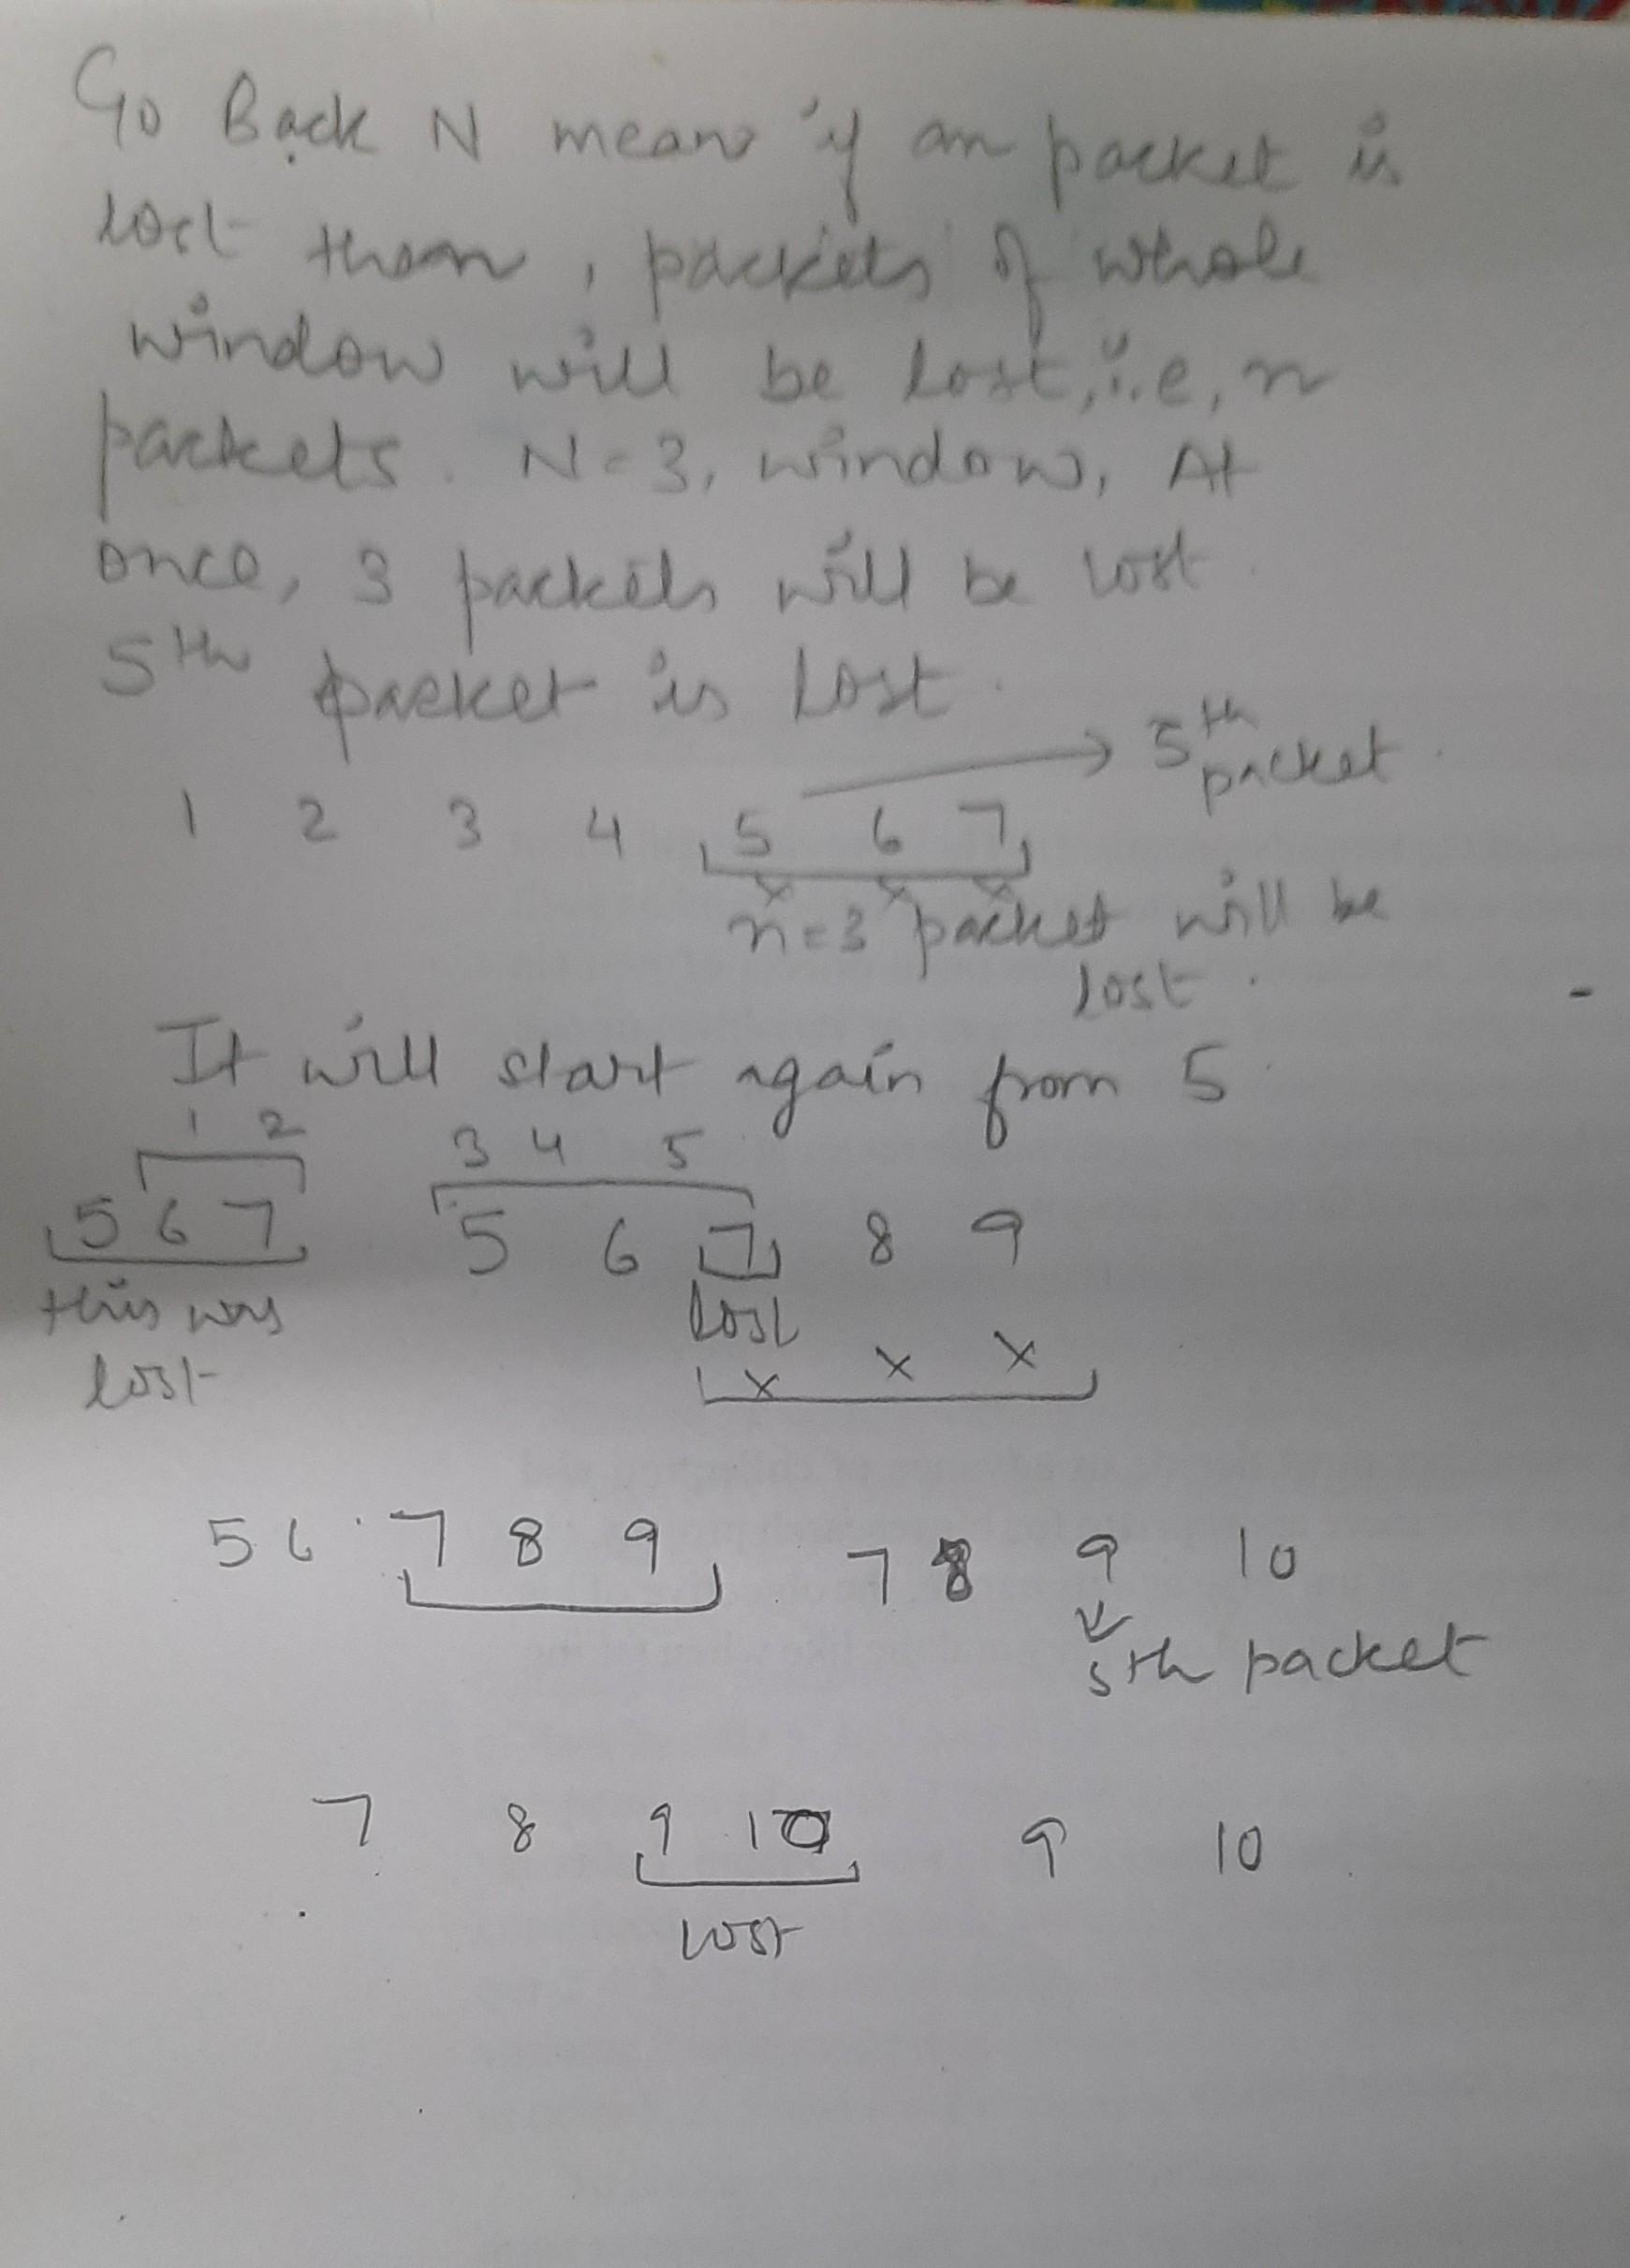 Go Back N means if an packet is
lost then, packets of whole
window will be lost, i.e, n
packets. N=3, window, At
once, 3 packets will be lost.
5th packet is lost.
→ 5th packet.
1 2 3 4 5 6 7
x x x
n=3 packet will be
lost.
It will start again from 5.
1 2 3 4 5
5 6 7 5 6 7 8 9
this was lost
lost
x x x
5 6 7 8 9 7 8 9 10
5th packet
7 8 9 10 9 10
lost